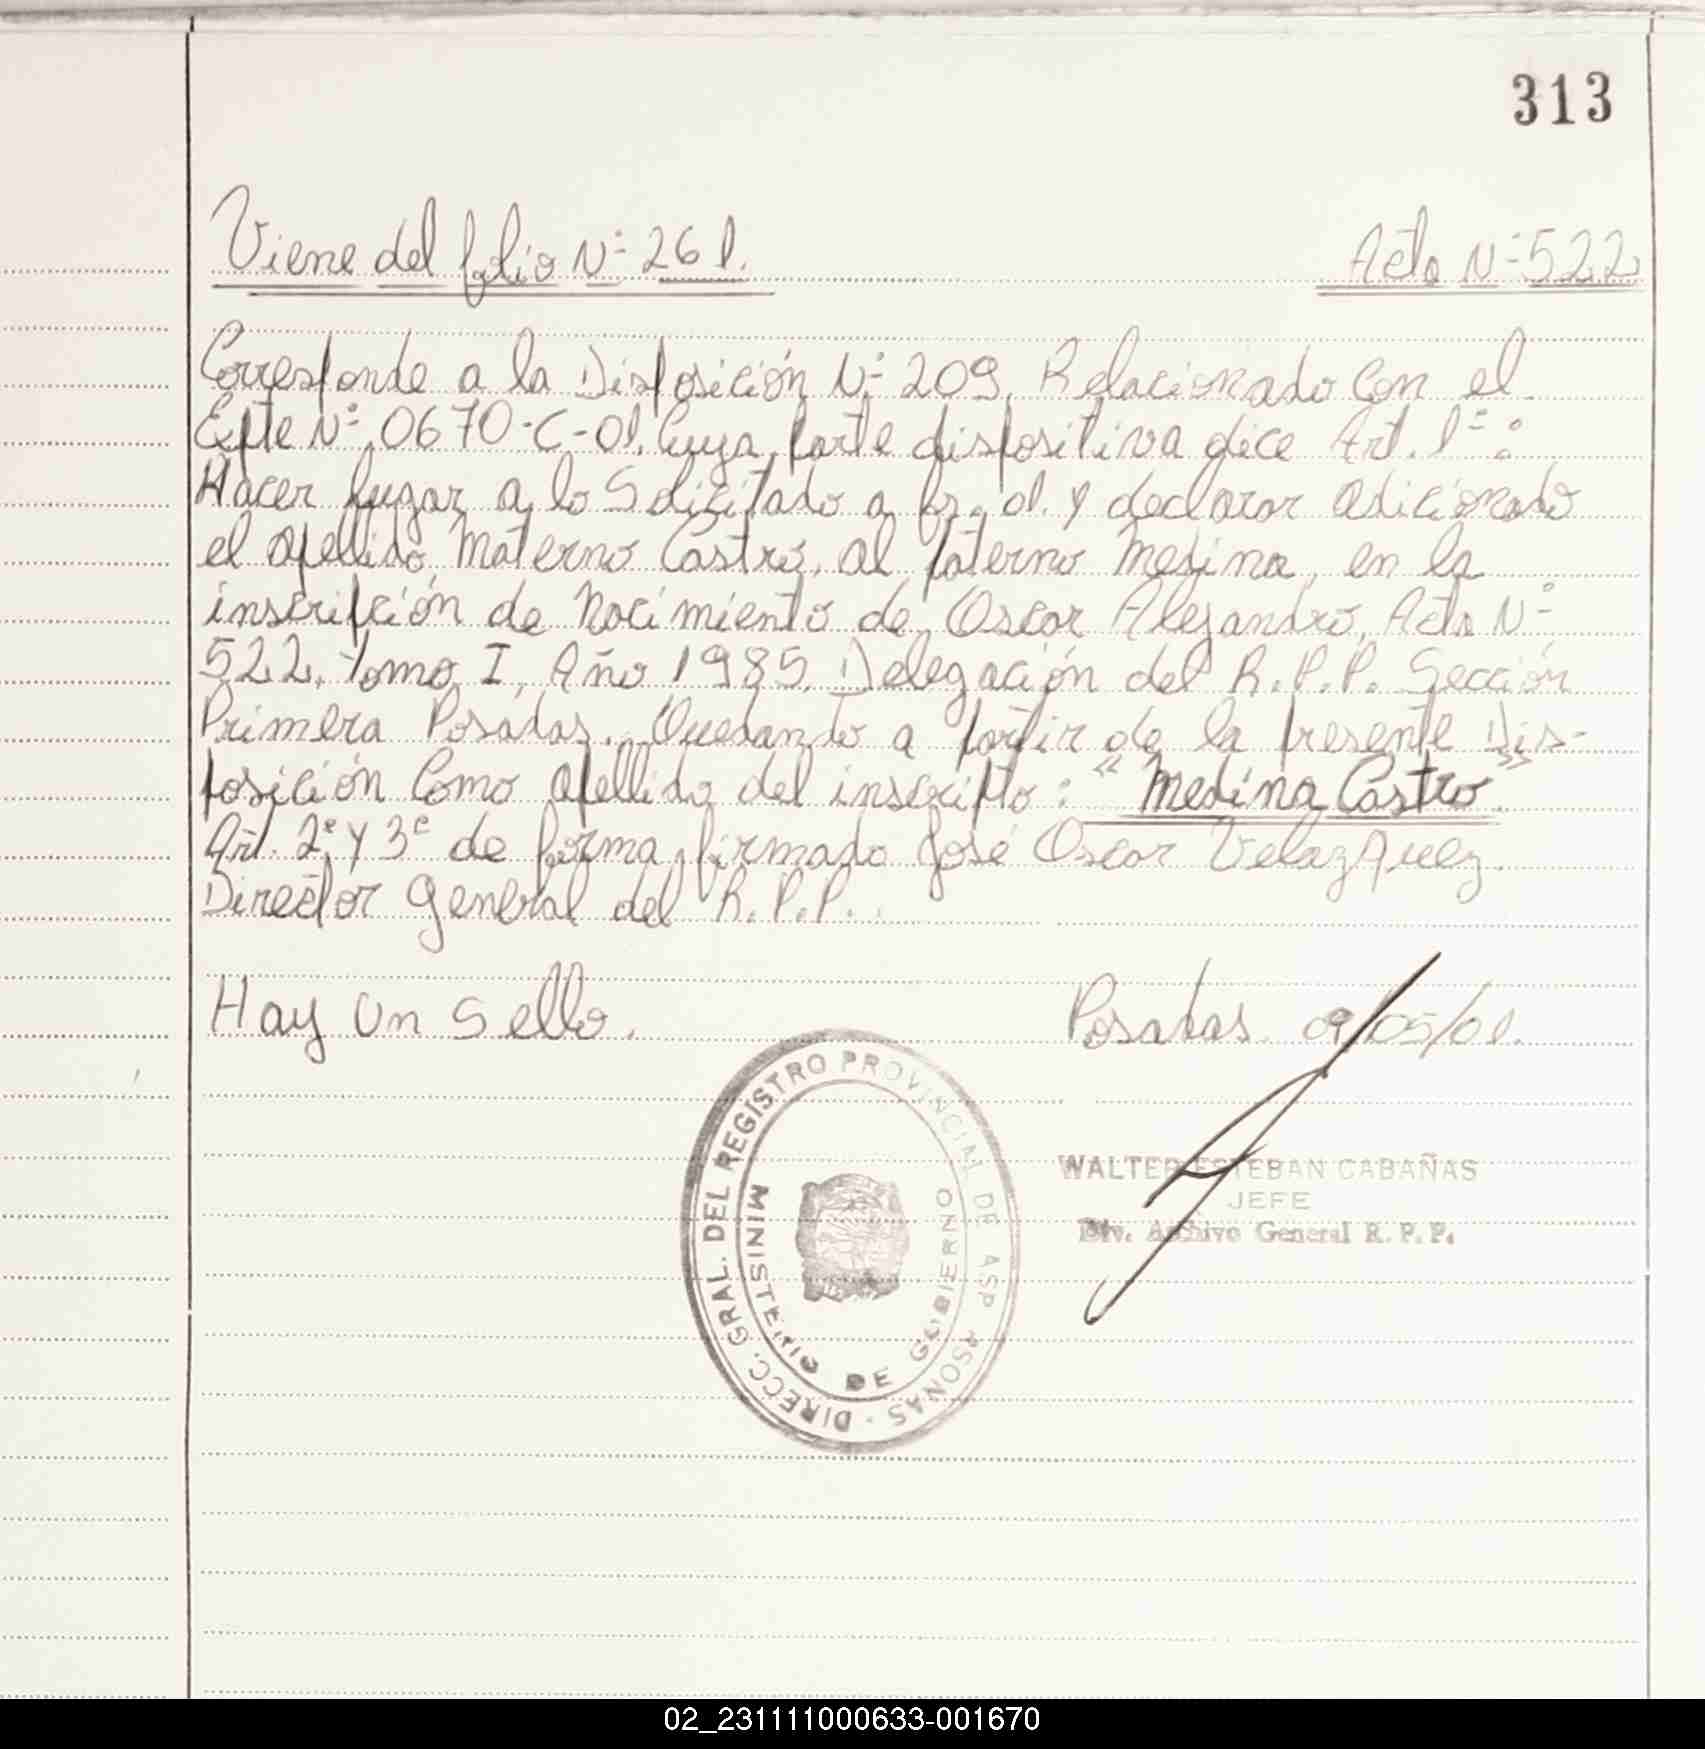 313
Viene del folio Nº 261. Acta Nº 522
Corresponde a la Disposición Nº 209, Relacionado Con el
Expte Nº 0670-C-01. Cuya parte dispositiva dice Art. 1º:
Hacer lugar a lo Solicitado a fs. 01. y declarar adicionado
el apellido Materno Castro, al paterno Medina, en la
inscripción de Nacimiento de Oscar Alejandro, Acta Nº
522, tomo I, Año 1985, Delegación del R.P.P. Sección
Primera Posadas. Quedando a partir de la presente Dis-
posición Como apellido del inscripto: "Medina Castro".
Art. 2º y 3º de forma, firmado José Oscar Velazquez.
Director General del R.P.P.
Hay Un Sello. Posadas, 09/05/01.
DIRECC. GRAL. DEL REGISTRO PROVINCIAL DE
MINISTERIO DE GOBIERNO
WALTER ESTEBAN CABAÑAS
JEFE
Div. Archivo General R. P. P.
02_231111000633-001670